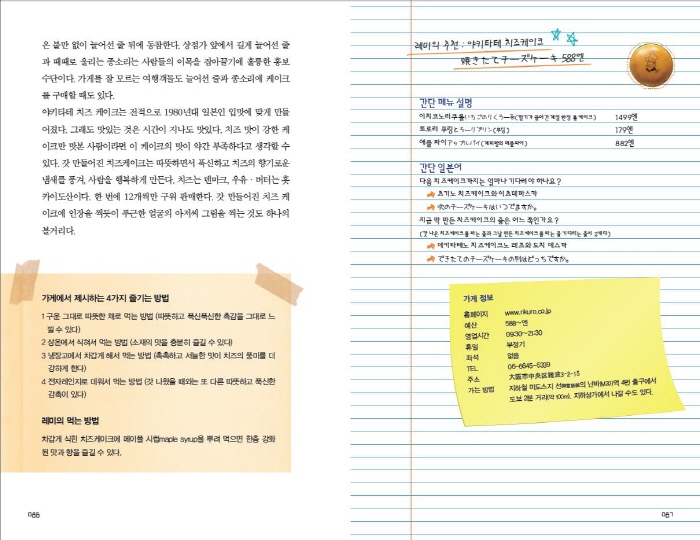 은 불만 없이 늘어선 줄 뒤에 동참한다. 상점가 앞에서 길게 늘어선 줄
과 때때로 울리는 종소리는 사람들의 이목을 잡아끌기에 훌륭한 홍보
수단이다. 가게를 잘 모르는 여행객들도 늘어선 줄과 종소리에 케이크
를 구매할 때도 있다.
야키타테 치즈 케이크는 전적으로 1980년대 일본인 입맛에 맞게 만들
어졌다. 그래도 맛있는 것은 시간이 지나도 맛있다. 치즈 맛이 강한 케
이크만 맛본 사람이라면 이 케이크의 맛이 약간 부족하다고 생각할 수
있다. 갓 만들어진 치즈케이크는 따뜻하면서 폭신하고 치즈의 향기로운
냄새를 풍겨, 사람을 행복하게 만든다. 치즈는 덴마크, 우유·버터는 홋
카이도산이다. 한 번에 12개씩만 구워 판매한다. 갓 만들어진 치즈 케
이크에 인장을 찍듯이 푸근한 얼굴의 아저씨 그림을 찍는 것도 하나의
볼거리다.
가게에서 제시하는 4가지 즐기는 방법
1 구운 그대로 따뜻한 채로 먹는 방법 (따뜻하고 푹신푹신한 촉감을 그대로 느
낄 수 있다)
2 상온에서 식혀서 먹는 방법 (소재의 맛을 충분히 즐길 수 있다)
3 냉장고에서 차갑게 해서 먹는 방법 (촉촉하고 서늘한 맛이 치즈의 풍미를 더
강하게 한다)
4 전자레인지로 데워서 먹는 방법 (갓 나왔을 때와는 또 다른 따뜻하고 푹신한
감촉이 있다)
레미의 먹는 방법
차갑게 식힌 치즈케이크에 메이플 시럽maple syrup을 뿌려 먹으면 한층 강화
된 맛과 향을 즐길 수 있다.
086
레미의 추천 : 야키타테 치즈케이크
焼きたてチーズケーキ 588엔
간단 메뉴 설명
1499엔
179엔
애플 파이アップルパイ 882엔
간단 일본어
다음 치즈케이크까지는 얼마나 기다려야 하나요?
츠기노 치즈케이크와이츠데쓰카
次のチーズケーキはいつですか。
지금 막 만든 치즈케이크의 줄은 어느 쪽인가요?
데키타테노 치즈케이크노 레츠와 도치 데스카
できたてのチーズケーキの列はどっちですか。
가게 정보
홈페이지 www.rikuro.co.jp
예산 588~엔
영업시간 09:30~21:30
휴일 부정기
좌석 없음
TEL 06-6645-5339
주소 大阪市中央区難波3-2-15
가는 방법 지하철 미도스지 선의 난바(M20)역 4번 출구에서
도보 2분 거리(약 100m). 지하상가에서 나갈 수도 있다.
087